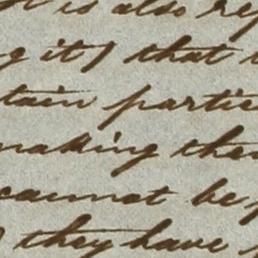 is also rep
g it) that
tain partic
making the
cannot be
they have